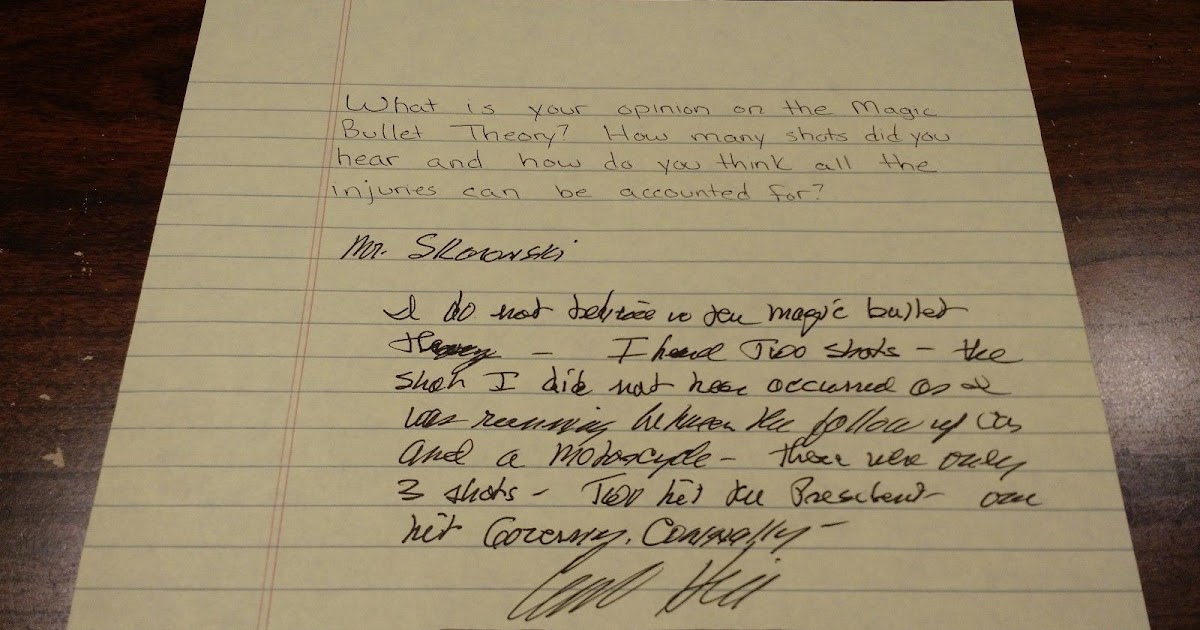 What is your opinion on the Magic
Bullet Theory? How many shots did you
hear and how do you think all the
injuries can be accounted for?
Mr. Skorowski
I do not believe in the magic bullet
theory - I heard Two shots - the
shot I did not hear occurred as I
was running between the follow up car
and a motorcycle - there were only
3 shots - Two hit the President - one
hit Governor Connally -
Clint Hill